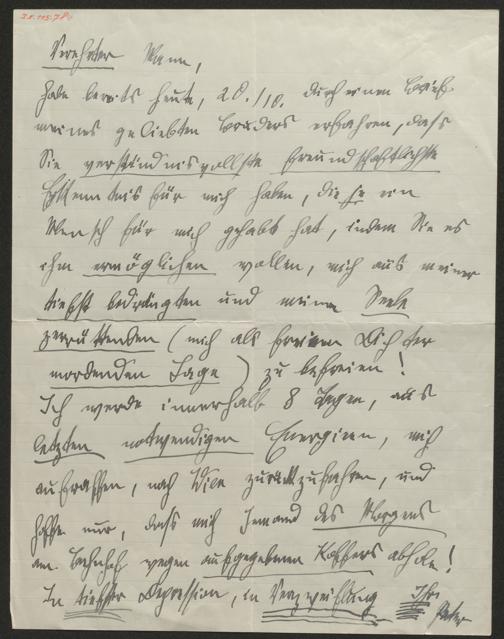 I.N. 115.78
Verehrter Mann,
habe bereits heute, 20./10. durch einen Brief
meines geliebten Bruders erfahren, dass
Sie verständnisvollste freundschaftlichste
Erkenntnis für mich haben, die je ein
Mensch für mich gehabt hat, indem Sie es
ihm ermöglichen wollen, mich aus meiner
tiefst bedrängten und meine Seele
zerrüttenden (mich als freien Dichter
mordenden Lage) zu befreien!
Ich werde innerhalb 8 Tagen, aus
letzten notwendigen Energieen, mich
aufraffen, nach Wien zurückzufahren, und
hoffe nur, dass mich Jemand des Morgens
am Bahnhof wegen aufgegebenen Koffers abhole!
In tiefster Depression, in Verzweiflung Ihr
Peter